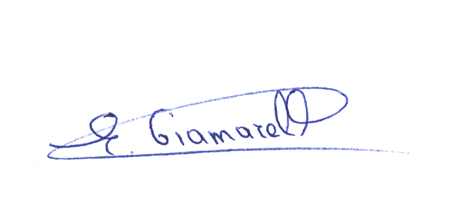 E. Giamarell